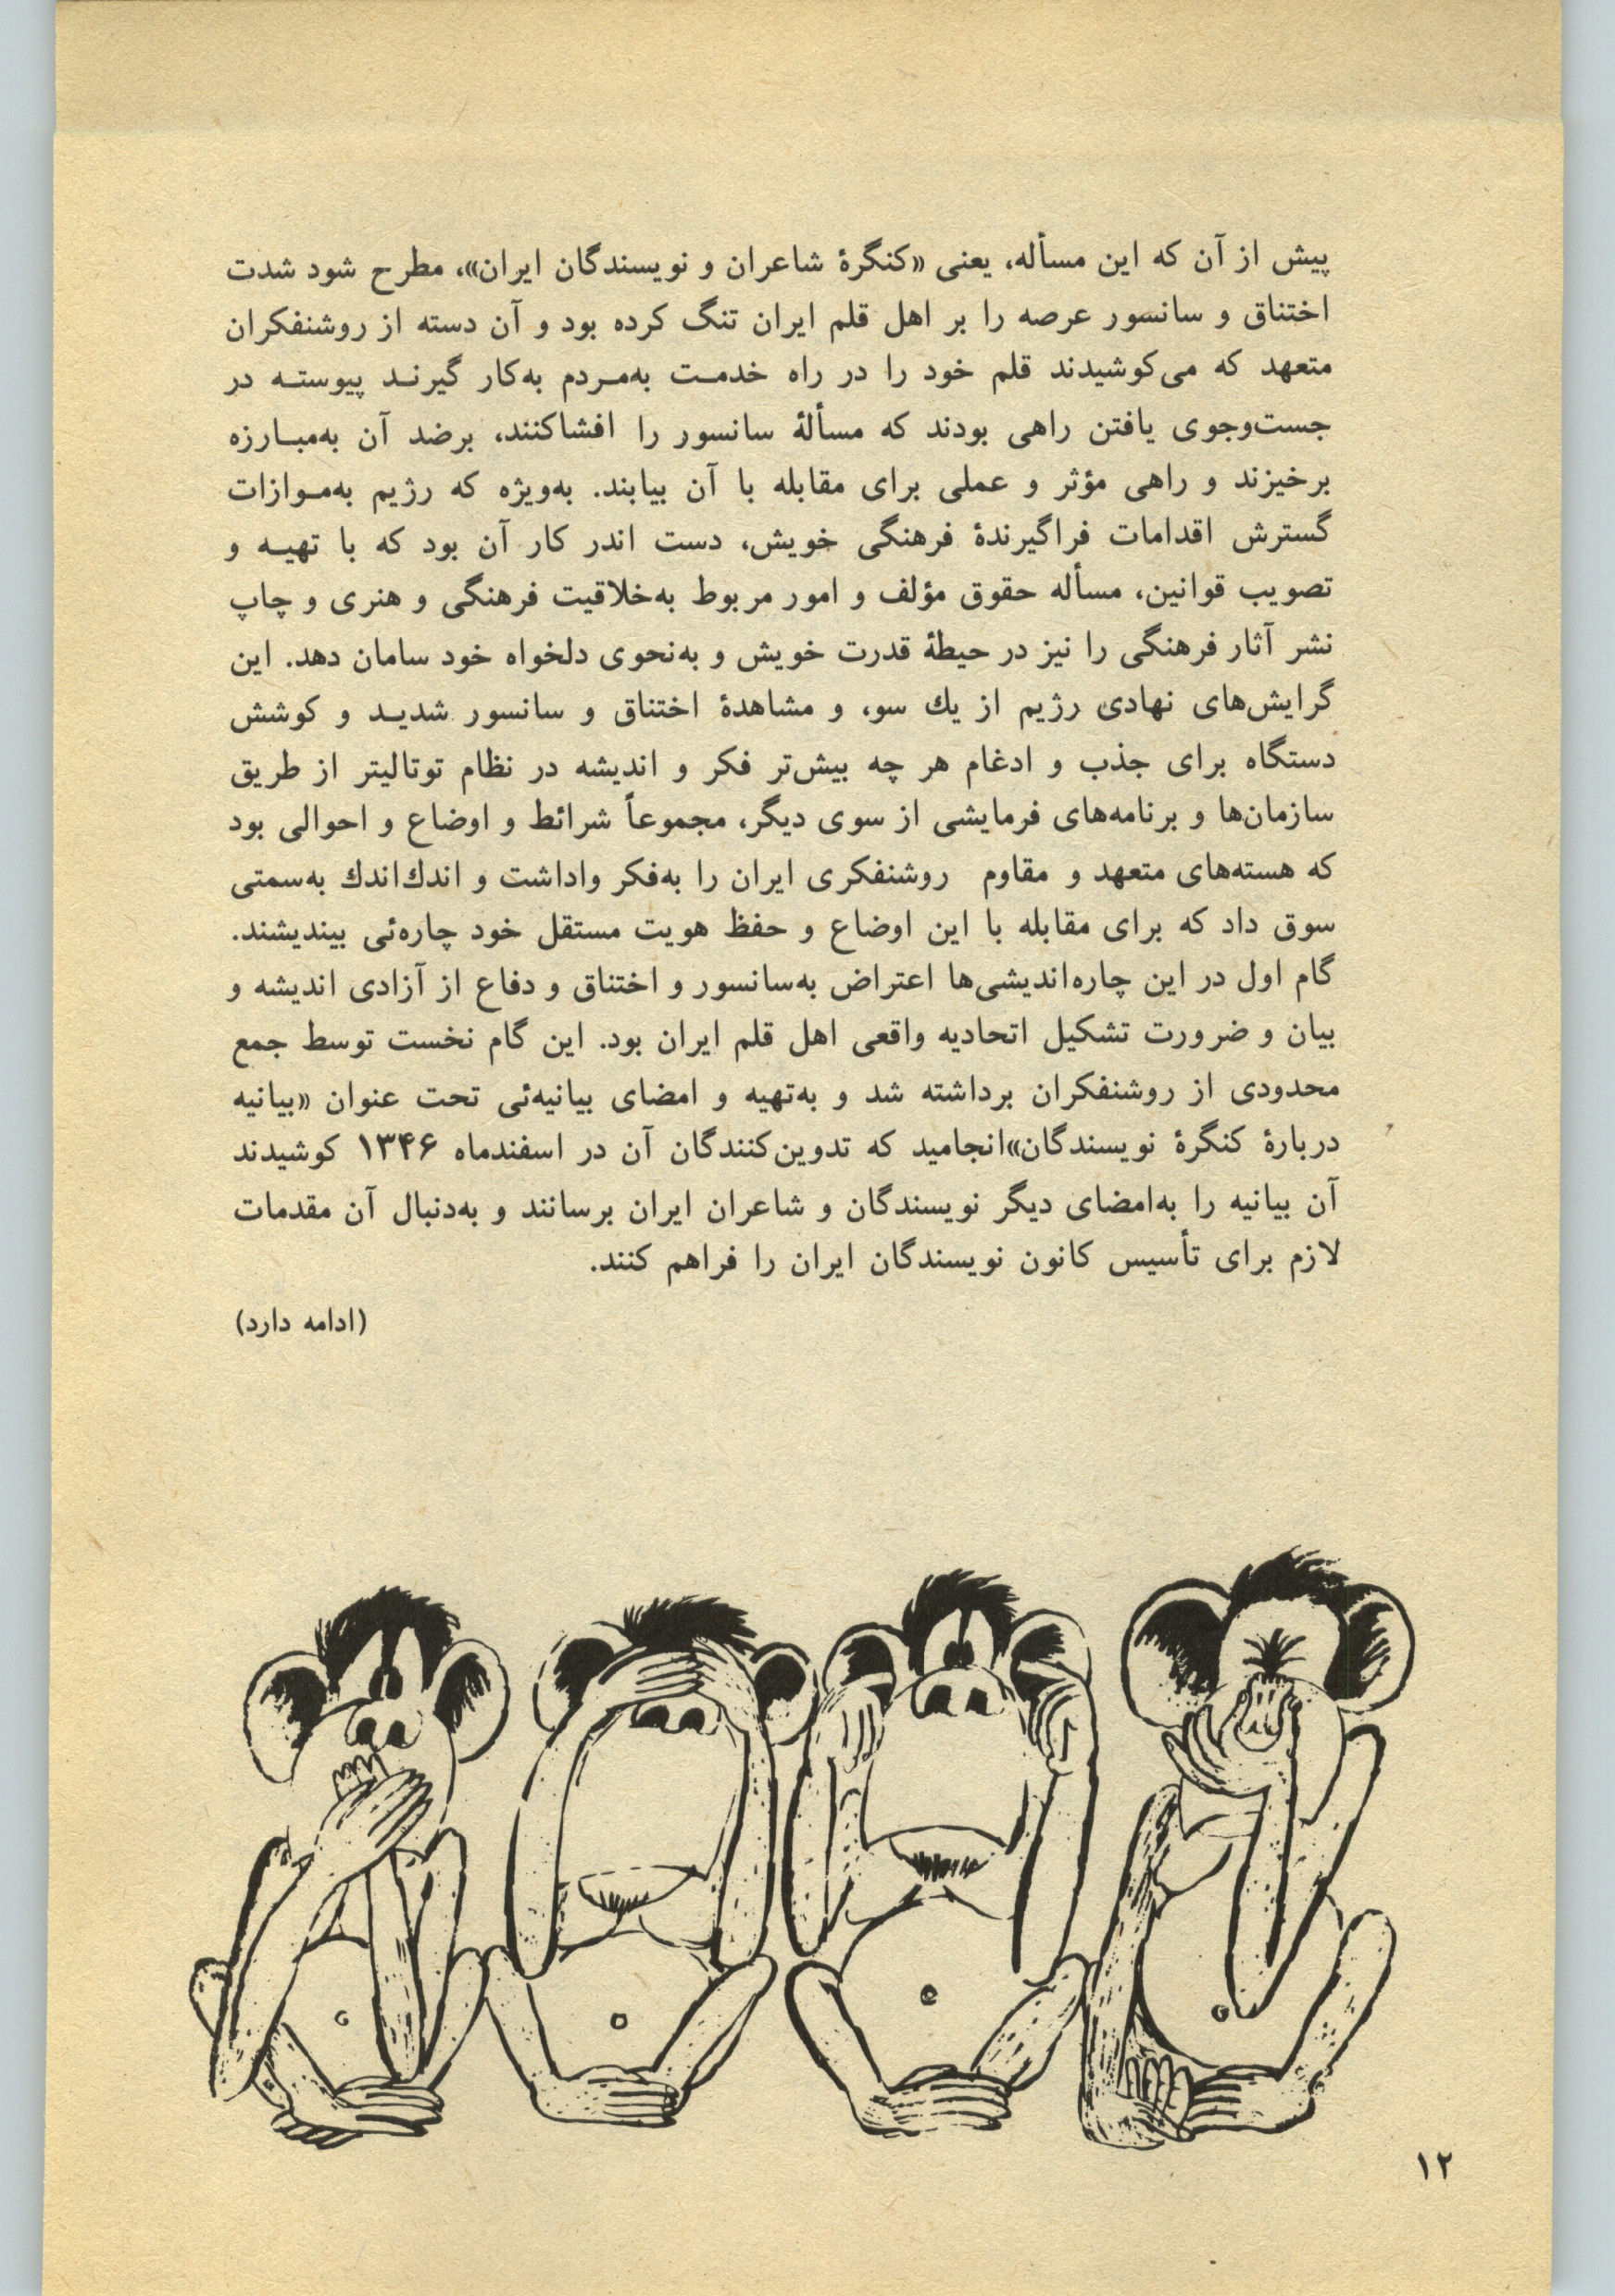 پیش از آن که این مسأله، یعنی «کنگرهٔ شاعران و نویسندگان ایران»، مطرح شود شدت
اختناق و سانسور عرصه را بر اهل قلم ایران تنگ کرده بود و آن دسته از روشنفکران
متعهد که می‌کوشیدند قلم خود را در راه خدمت به‌مردم به‌کار گیرند پیوسته در
جست‌وجوی یافتن راهی بودند که مسألهٔ سانسور را افشاکنند، برضد آن به‌مبارزه
برخیزند و راهی مؤثر و عملی برای مقابله با آن بیابند. به‌ویژه که رژیم به‌موازات
گسترش اقدامات فراگیرندهٔ فرهنگی خویش، دست اندر کار آن بود که با تهیه و
تصویب قوانین، مسأله حقوق مؤلف و امور مربوط به‌خلاقیت فرهنگی و هنری و چاپ
نشر آثار فرهنگی را نیز در حیطهٔ قدرت خویش و به‌نحوی دلخواه خود سامان دهد. این
گرایش‌های نهادی رژیم از یك سو، و مشاهدهٔ اختناق و سانسور شدید و کوشش
دستگاه برای جذب و ادغام هر چه بیش‌تر فکر و اندیشه در نظام توتالیتر از طریق
سازمان‌ها و برنامه‌های فرمایشی از سوی دیگر، مجموعاً شرائط و اوضاع و احوالی بود
که هسته‌های متعهد و مقاوم روشنفکری ایران را به‌فکر واداشت و اندك‌اندك به‌سمتی
سوق داد که برای مقابله با این اوضاع و حفظ هویت مستقل خود چاره‌ئی بیندیشند.
گام اول در این چاره‌اندیشی‌ها اعتراض به‌سانسور و اختناق و دفاع از آزادی اندیشه و
بیان و ضرورت تشکیل اتحادیه واقعی اهل قلم ایران بود. این گام نخست توسط جمع
محدودی از روشنفکران برداشته شد و به‌تهیه و امضای بیانیه‌ئی تحت عنوان «بیانیه
دربارهٔ کنگرهٔ نویسندگان»انجامید که تدوین‌کنندگان آن در اسفندماه ۱۳۴۶ کوشیدند
آن بیانیه را به‌امضای دیگر نویسندگان و شاعران ایران برسانند و به‌دنبال آن مقدمات
لازم برای تأسیس کانون نویسندگان ایران را فراهم کنند.
(ادامه دارد)
۱۲